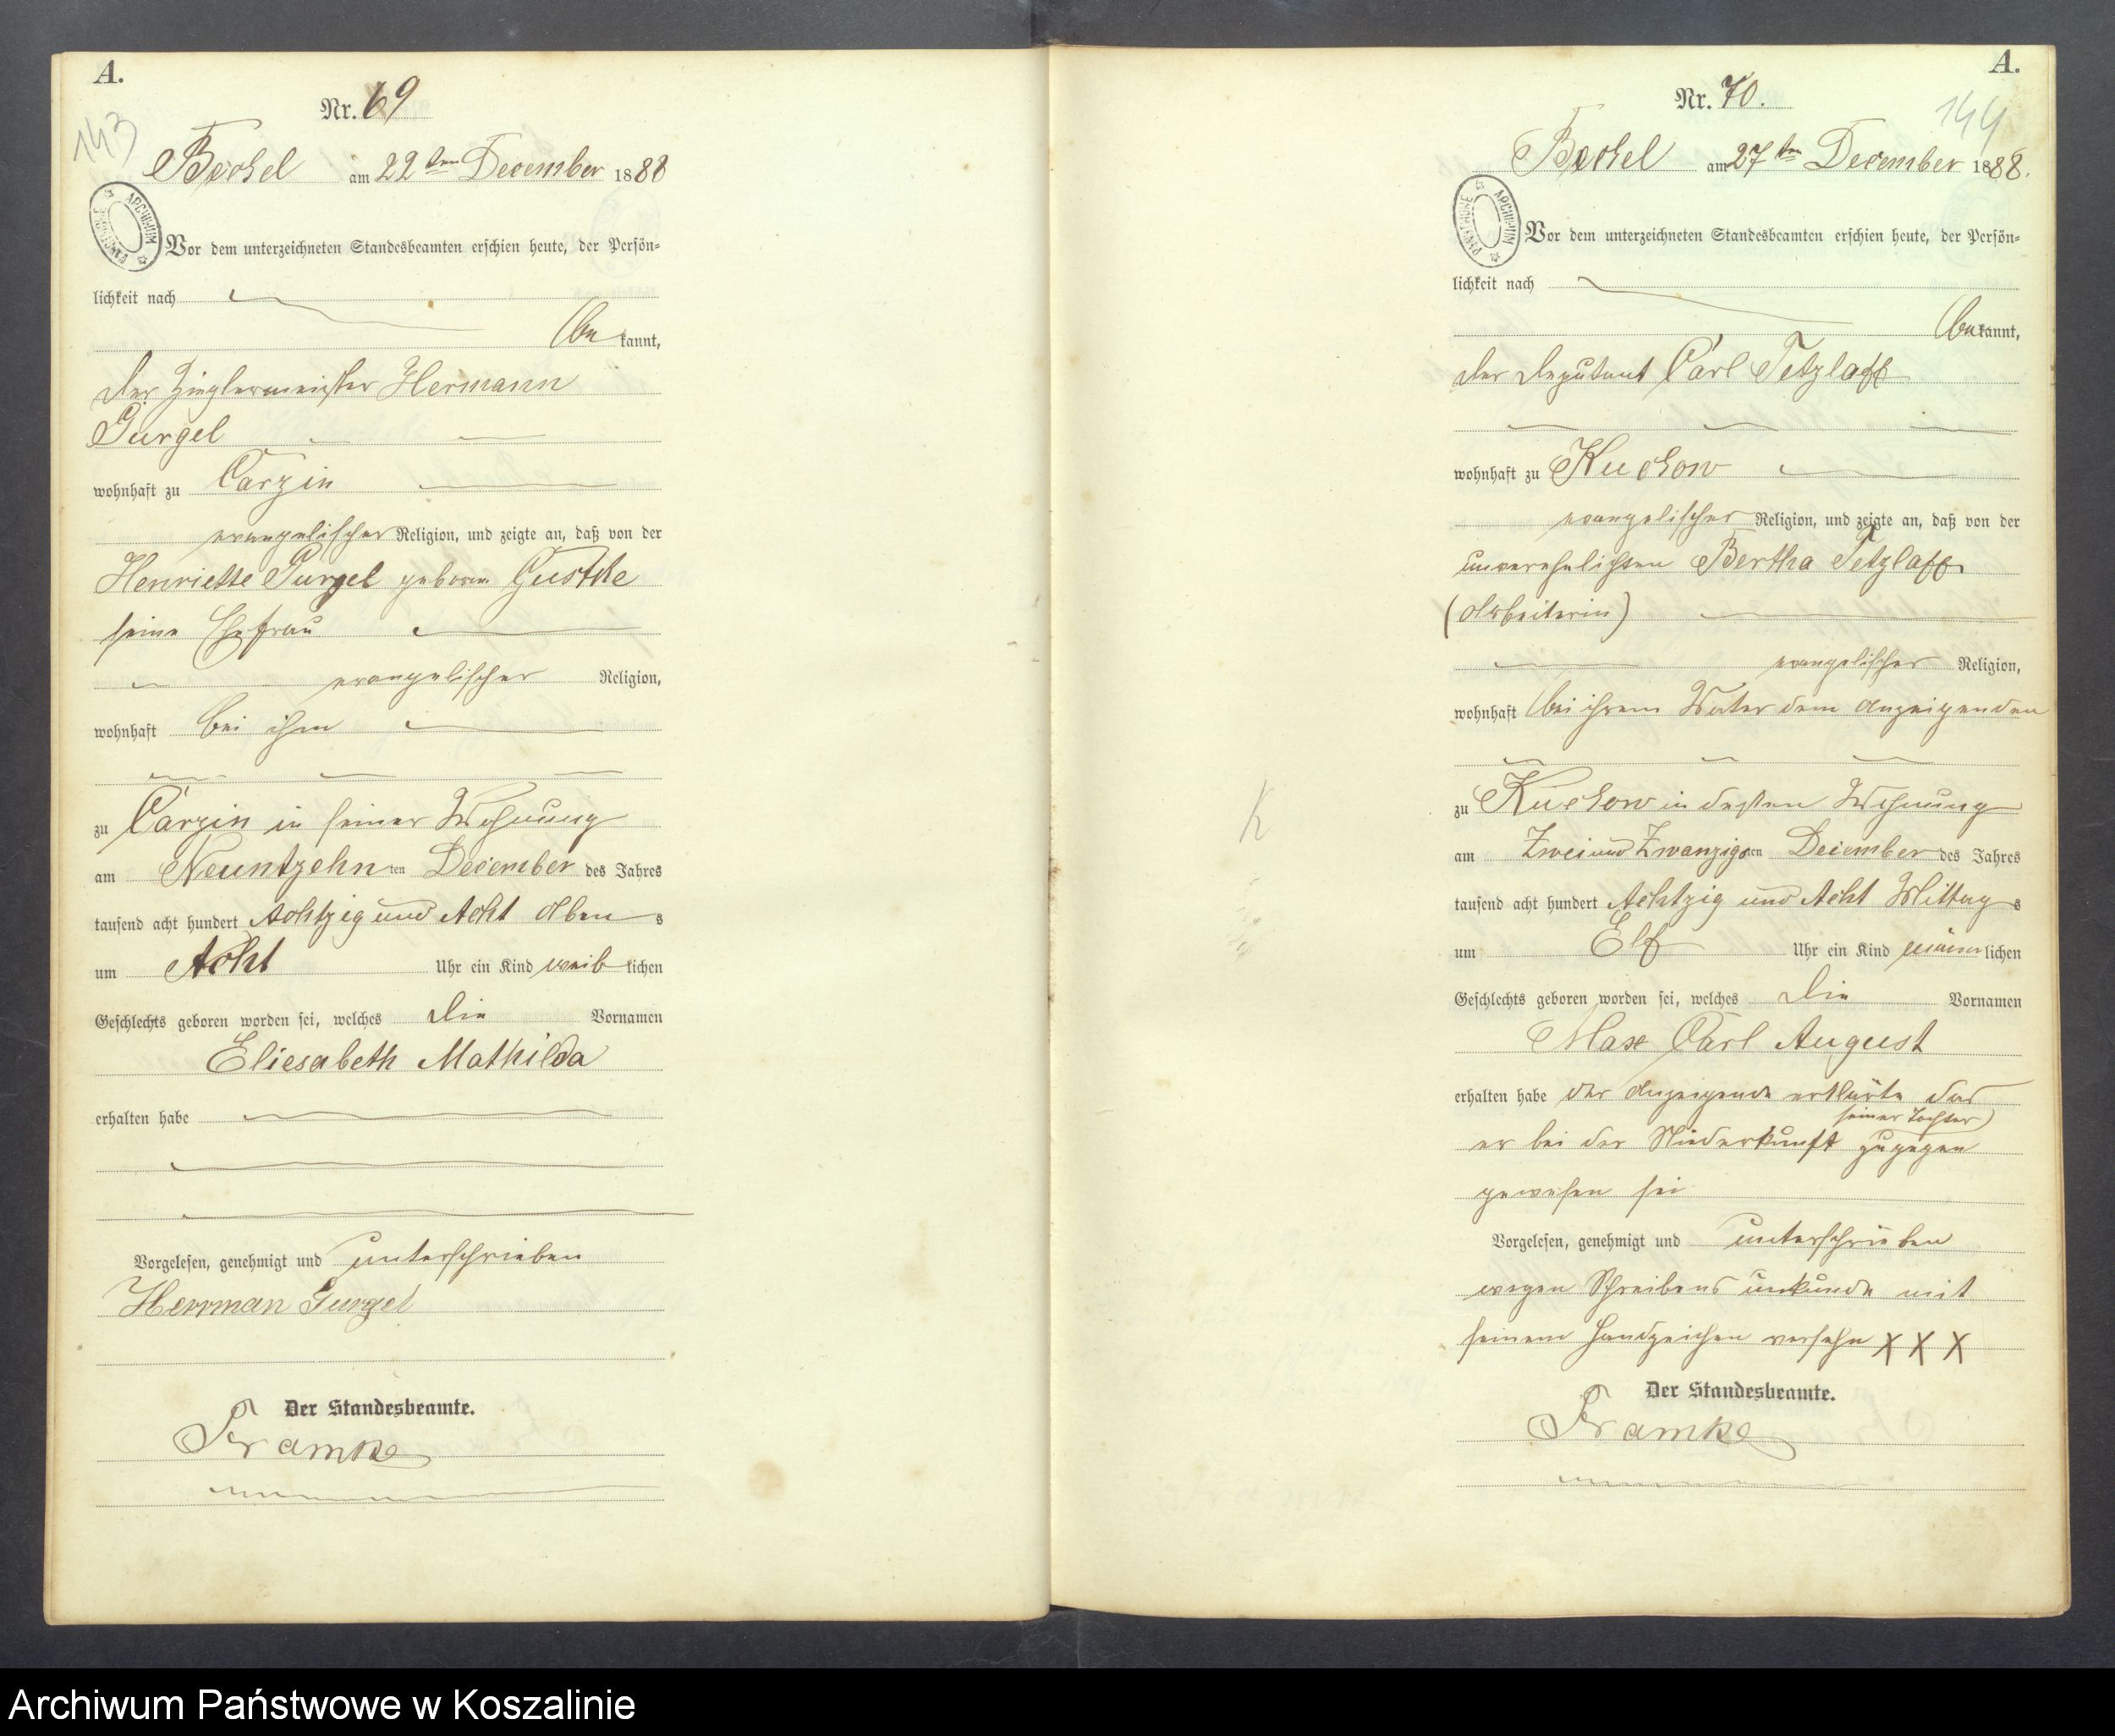 A.
Nr. 69
143
Bochel am 22ten December 1888
ARCHIWUM PAŃSTWOWE
Vor dem unterzeichneten Standesbeamten erschien heute, der Persön-
lichkeit nach
be kannt,
der Zieglermeister Hermann
Gurgel
wohnhaft zu Carzin
evangelischer Religion, und zeigte an, daß von der
Henriette Gurgel geboren Gustke
seine Ehefrau
evangelischer Religion,
wohnhaft bei ihm
zu Carzin in seiner Wohnung
am Neuntzehnten December des Jahres
tausend acht hundert Achtzig und Acht Abends
um Acht Uhr ein Kind weiblichen
Geschlechts geboren worden sei, welches die Vornamen
Eliesabeth Mathilda
erhalten habe
Vorgelesen, genehmigt und unterschrieben
Herrman Gurgel
Der Standesbeamte.
Framke
A.
Nr. 70.
144
Bochel am 27ten December 1888.
ARCHIWUM PAŃSTWOWE
Vor dem unterzeichneten Standesbeamten erschien heute, der Persön-
lichkeit nach
bekannt,
der Deputant Carl Tetzlaff
wohnhaft zu Kuckow
evangelischer Religion, und zeigte an, daß von der
unverehelichten Bertha Tetzlaff
(Arbeiterin)
evangelischer Religion,
wohnhaft bei ihrem Vater dem Anzeigenden
zu Kuckow in dessen Wohnung
K
am Zwei und Zwanzigsten December des Jahres
tausend acht hundert Achtzig und Acht Mittags
um Elf Uhr ein Kind männlichen
Geschlechts geboren worden sei, welches die Vornamen
Max Carl August
erhalten habe der Anzeigende erklärte das
seiner Tochter
er bei der Niederkunft zugegen
gewesen sei
Vorgelesen, genehmigt und unterschrieben
wegen Schreibens unkunde mit
seinem Handzeichen versehn X X X
Der Standesbeamte.
Framke
Archiwum Państwowe w Koszalinie